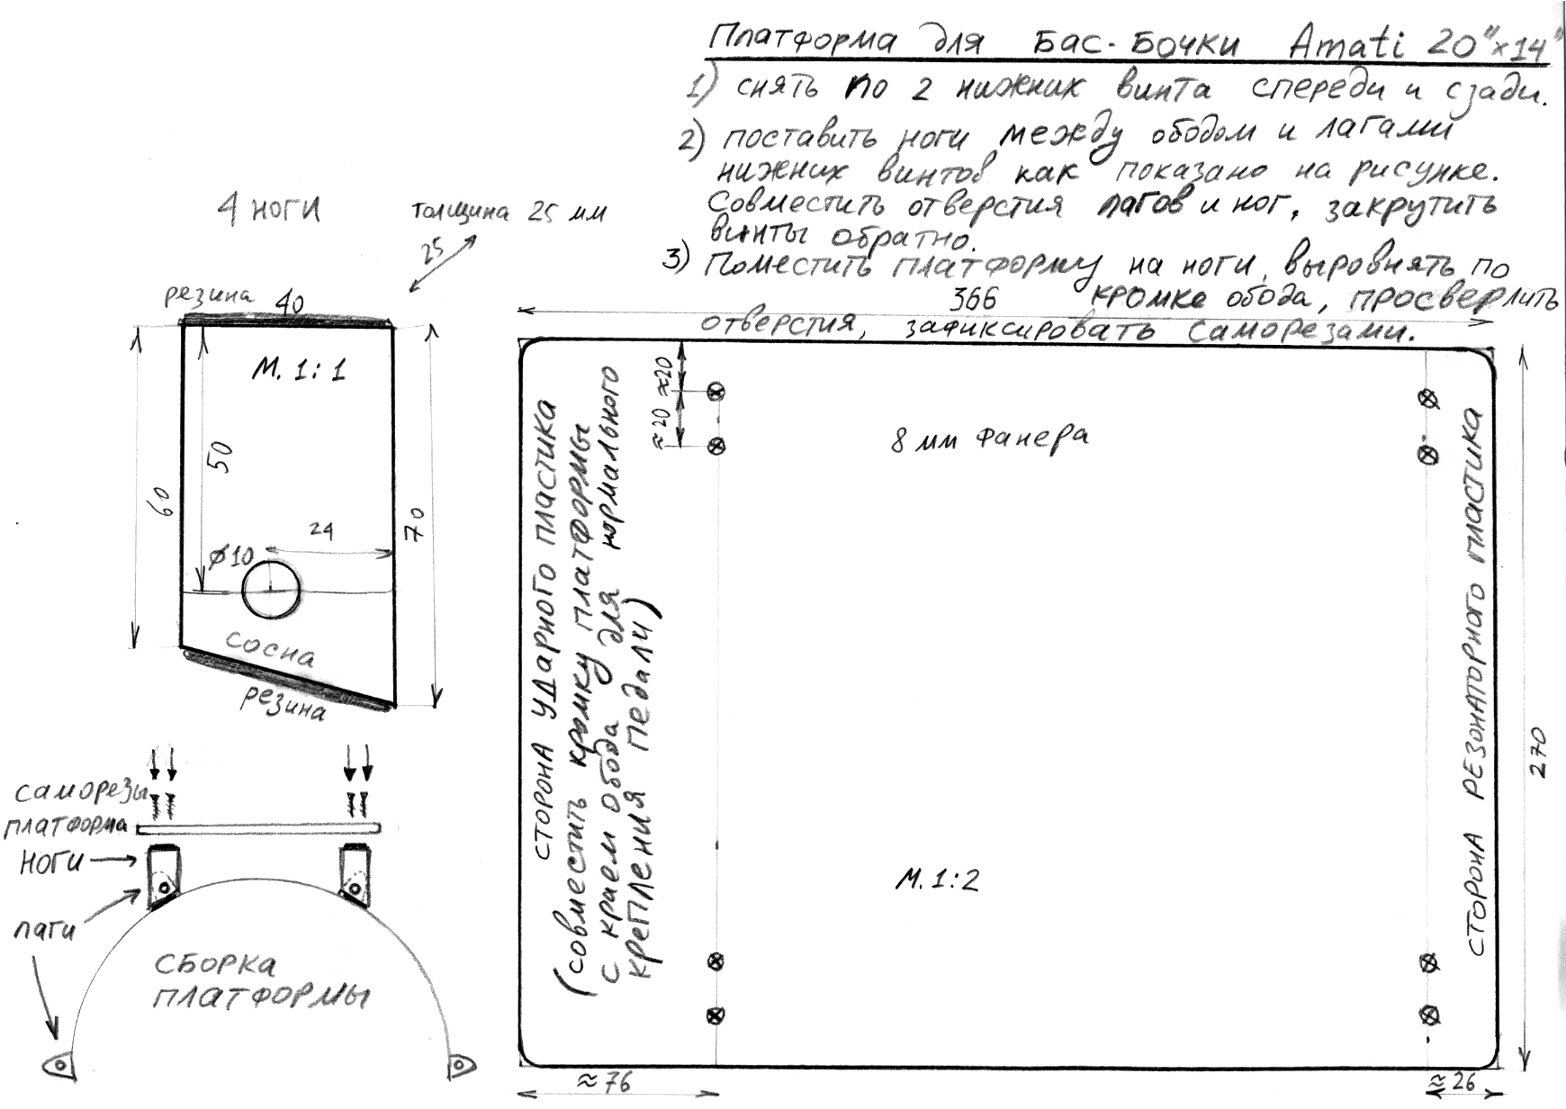 Платформа для Бас-Бочки Amati 20"x14"
1) снять по 2 нижних винта спереди и сзади.
2) поставить ноги между ободом и лагами
нижних винтов как показано на рисунке.
Совместить отверстия лагов и ног, закрутить
винты обратно.
3) Поместить платформу на ноги, выровнять по
кромке обода, просверлить
отверстия, зафиксировать саморезами.
4 ноги
толщина 25 мм
25
резина 40
М. 1:1
60
50
70
24
⌀10
сосна
резина
саморезы
платформа
ноги
лаги
СБОРКА
ПЛАТФОРМЫ
366
≈20
≈20
8 мм фанера
сторона ударного пластика
(совместить кромку платформы
с краем обода для нормального
крепления педали)
М. 1:2
сторона резонаторного пластика
270
≈76
≈26